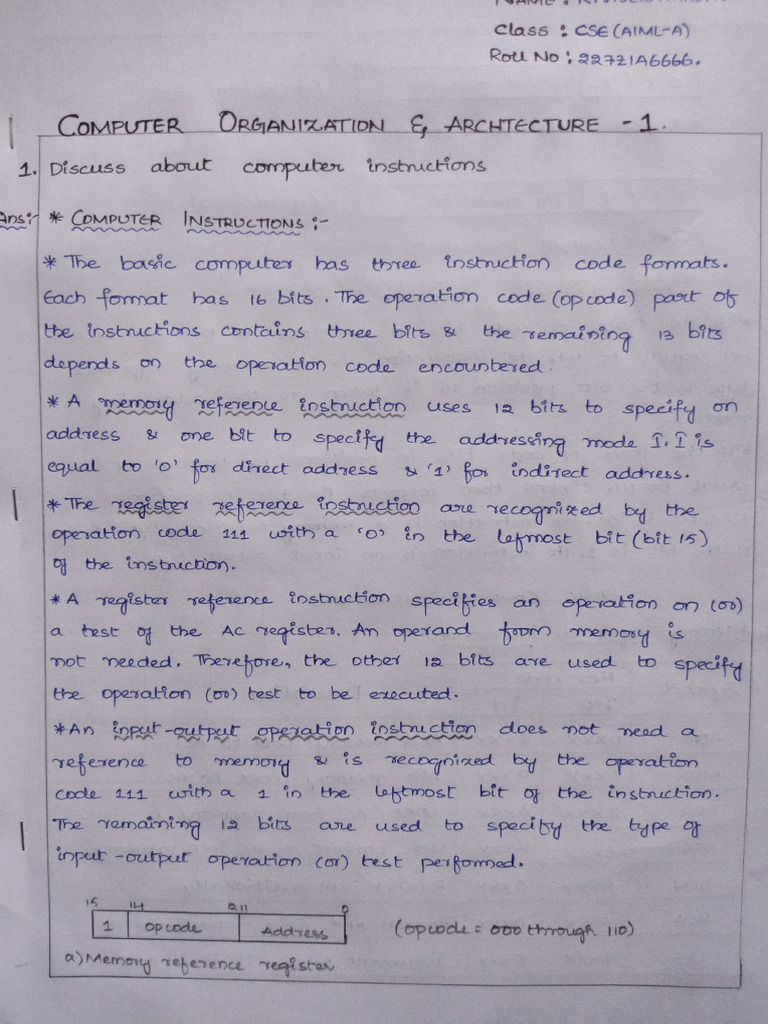 NAME :
Class : CSE (AIML-A)
Roll No : 227Z1A6666.
COMPUTER ORGANIZATION & ARCHTECTURE - 1.
1. Discuss about computer instructions
Ans:- * COMPUTER INSTRUCTIONS :-
* The basic computer has three instruction code formats.
Each format has 16 bits. The operation code (opcode) part of
the instructions contains three bits & the remaining 13 bits
depends on the operation code encountered.
* A memory reference instruction uses 12 bits to specify on
address & one bit to specify the addressing mode I. I is
equal to '0' for direct address & '1' for indirect address.
* The register reference instruction are recognized by the
operation code 111 with a '0' in the lefmost bit (bit 15)
of the instruction.
* A register reference instruction specifies an operation on (or)
a test of the AC register. An operand from memory is
not needed. Therefore, the other 12 bits are used to specify
the operation (or) test to be executed.
* An input-output operation instruction does not need a
reference to memory & is recognized by the operation
code 111 with a 1 in the leftmost bit of the instruction.
The remaining 12 bits are used to specify the type of
input-output operation (or) test performed.
15 14 12 11 0
1 opcode Address (opcode = 000 through 110)
a) Memory reference register